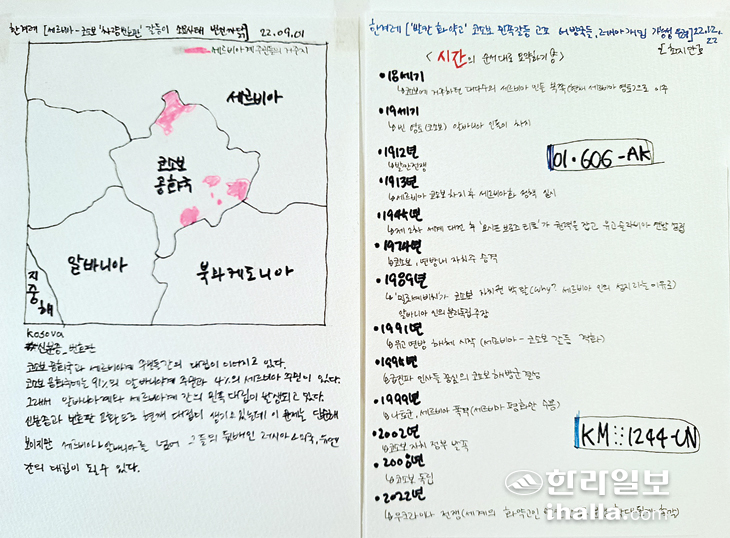 한겨레 [세르비아-코소보 '차량번호판' 갈등이 소요사태 번진 까닭] 22.09.01
세르비아계 주민들의 거주지
세르비아
코소보
공화국
알바니아
북마케도니아
지중해
Kosova
신분증_번호판
코소보 공화국과 세르비아계 주민들간의 대립이 이어지고 있다.
코소보 공화국에는 91%의 알바니아계 주민과 4%의 세르비아 주민이 있다.
그래서 알바니아계와 세르비아계 간의 민족 대립이 발생되고 있다.
신분증과 번호판 문제로 현재 대립이 생기고 있는데 이 문제는 단순해
보이지만 세르비아와 알바니아를 넘어 그들의 뒷배인 러시아와 미국, 유럽
간의 대립이 될 수 있다.
한겨레 ['발칸 화약고' 코소보 민족갈등 고조 서방국들, 러시아 개입 가능성 우려] 22.12.22
<시간의 순서대로 요약하기>
18세기
↳코소보에 거주하던 대다수의 세르비아 인들 북쪽(현재 세르비아 영토)으로 이주
19세기
↳빈 영토(코소보) 알바니아 인들이 차지
1912년
↳발칸전쟁
1913년
↳세르비아 코소보 차지 후 세르비아화 정책 실시
1945년
↳제 2차 세계 대전 후 '요시프 브로즈 티토'가 권력을 잡고 유고슬라비아 연방 설립
1974년
↳코소보, 연방내 자치주 승격
1989년
↳'밀로셰비치'가 코소보 자치권 박탈(Why? 세르비아 인의 성지라는 이유로)
알바니아 인의 분리독립주장
1991년
↳유고연방 해체 시작 (세르비아-코소보 갈등 격화)
1995년
↳급진파 인사들 중심의 코소보 해방군 결성
1999년
↳나토군, 세르비아 폭격(세르비아 평화안 수용)
2002년
↳코소보 자치 정부 발족
2008년
↳코소보 독립
2022년
↳우크라이나 전쟁(세계의 화약고인
01·606-AK
KM 1244-UN
한라일보
ihalla.com